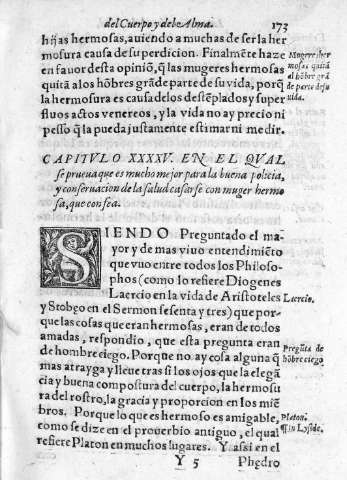 del Cuerpo y del Alma. 173
hijas hermosas, auiendo a muchas de ser la her
mosura causa de su perdicion. Finalmẽte haze
en fauor desta opiniõ, q̃ las mugeres hermosas
quitã a los hõbres grã de parte de su vida, porq̃
la hermosura es causa de los destẽplados y super
fluos actos venereos, y la vida no ay precio ni
pesso q̃ la pueda justamente estimar ni medir.
Mugeres her
mosas quitã
al hõbre grã
de parte de su
vida.
CAPITVLO XXXXV. EN EL QVAL
se prueua que es mucho mejor para la buena policia,
y conseruacion de la salud casarse con muger hermo
sa, que con fea.
SIENDO Preguntado el ma
yor y de mas viuo entendimiẽto
que vuo entre todos los Philoso-
phos (como lo refiere Diogenes
Laercio en la vida de Aristoteles
Laercio.
y Stobeo en el Sermon sesenta y tres) que por-
que las cosas que eran hermosas, eran de todos
amadas, respondio, que esta pregunta eran
de hombre ciego. Porque no ay cosa alguna q̃
Pregũta de
hõbre ciego
mas atrayga y lleue tras si los ojos que la elegã
cia y buena compostura del cuerpo, la hermosu
ra del rostro, la gracia y proporcion en los miẽ
bros. Porque lo que es hermoso es amigable,
como se dize en el prouerbio antiguo, el qual
Platon.
in Lyside.
refiere Platon en muchos lugares. Y assi en el
Y 5 Phedro